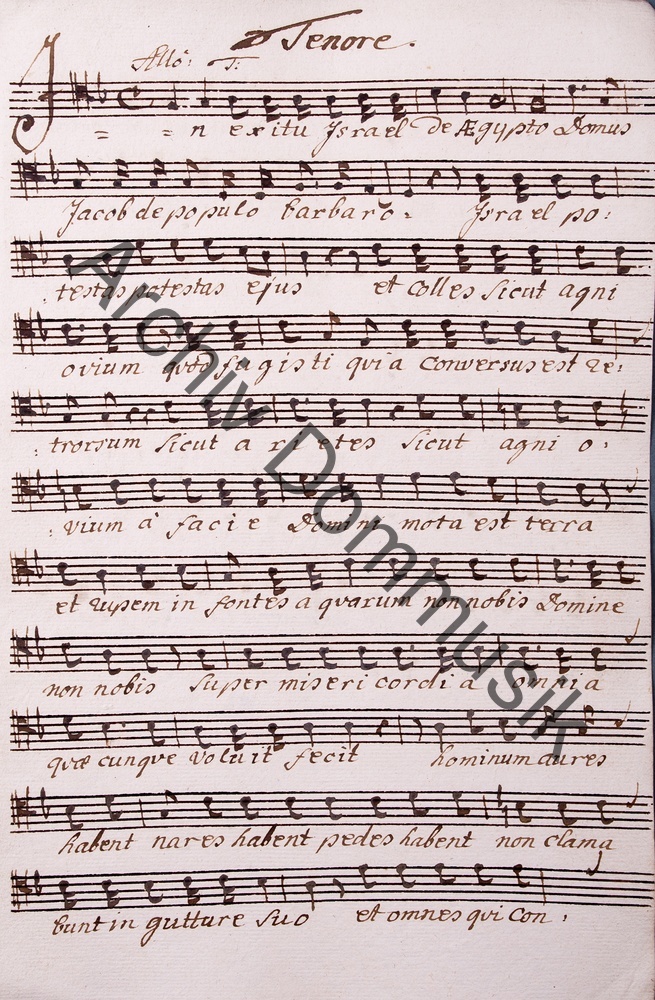 Tenore.
Allo: T:
J = = n exitu Jsrael de Ægypto Domus
Jacob de populo barbaro. Jsrael po:
:testas potestas ejus et colles sicut agni
ovium quod fugisti quia conversus est re:
:trorsum sicut arietes sicut agni o:
:vium à facie Domini mota est terra
et rupem in fontes aquarum non nobis Domine
non nobis super misericordia omnia
quæcunque voluit fecit hominum aures
habent nares habent pedes habent non clama
bunt in gutture suo et omnes qui con:
Archiv Dommusik